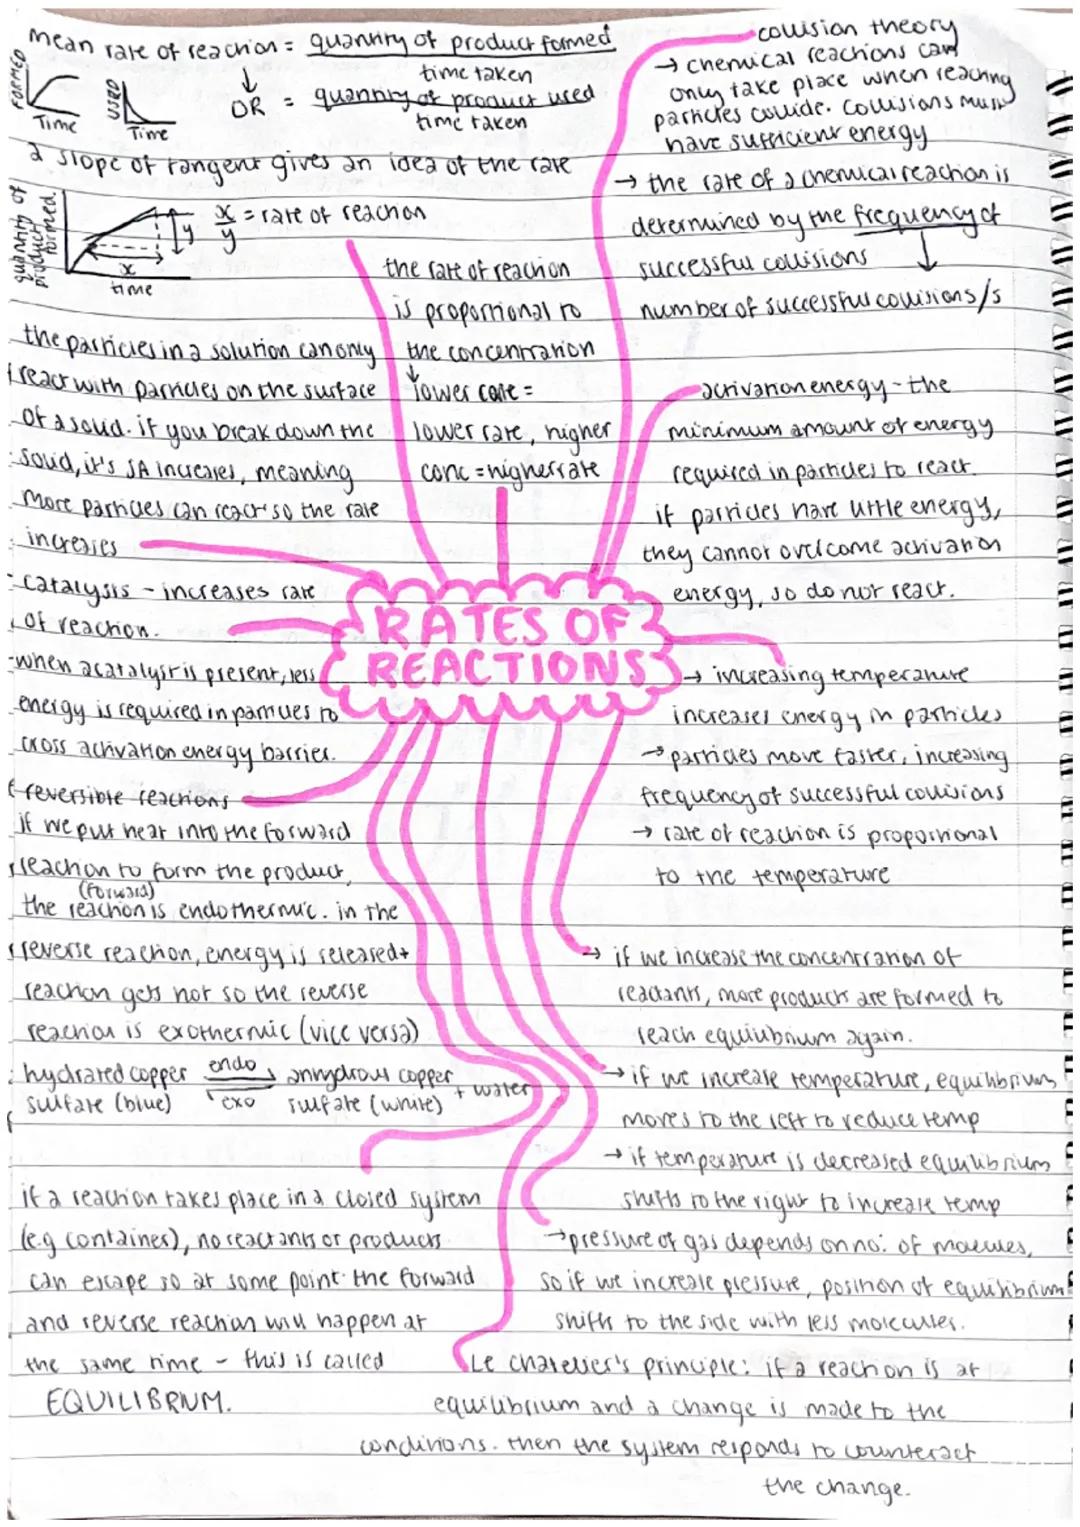 mean rate of reaction = quantity of product formed
time taken
OR = quantity of product used
time taken
FORMED
Time
USED
Time
a slope of tangent gives an idea of the rate
quantity of product formed.
x
time
y
x/y = rate of reaction
collision theory
→ chemical reactions can
only take place when reacting
particles collide. Collisions must
have sufficient energy
→ the rate of a chemical reaction is
determined by the frequency of
successful collisions
number of successful collisions/s
the rate of reaction
is proportional to
the concentration
lower conc =
lower rate, higher
conc = higher rate
the particles in a solution can only
react with particles on the surface
of a solid. if you break down the
solid, it's SA increases, meaning
more particles can react so the rate
increases
activation energy - the
minimum amount of energy
required in particles to react.
if particles have little energy,
they cannot overcome activation
energy, so do not react.
catalysts - increases rate
of reaction.
-when a catalyst is present, less
energy is required in particles to
cross activation energy barrier.
RATES OF
REACTIONS
→ increasing temperature
increases energy in particles
→ particles move faster, increasing
frequency of successful collisions
→ rate of reaction is proportional
to the temperature
reversible reactions
if we put heat into the forward
reaction to form the product,
(forward)
the reaction is endothermic. in the
reverse reaction, energy is released +
reaction gets hot so the reverse
reaction is exothermic (vice versa)
hydrated copper endo anhydrous copper + water
sulfate (blue) exo sulfate (white)
→ if we increase the concentration of
reactants, more products are formed to
reach equilibrium again.
→ if we increase temperature, equilibrium
moves to the left to reduce temp
→ if temperature is decreased equilibrium
shifts to the right to increase temp
→ pressure of gas depends on no. of molecules,
so if we increase pressure, position of equilibrium
shifts to the side with less molecules.
if a reaction takes place in a closed system
(e.g container), no reactants or products
can escape so at some point the forward
and reverse reaction will happen at
the same time - this is called
EQUILIBRIUM.
Le chatelier's principle: if a reaction is at
equilibrium and a change is made to the
conditions. then the system responds to counteract
the change.